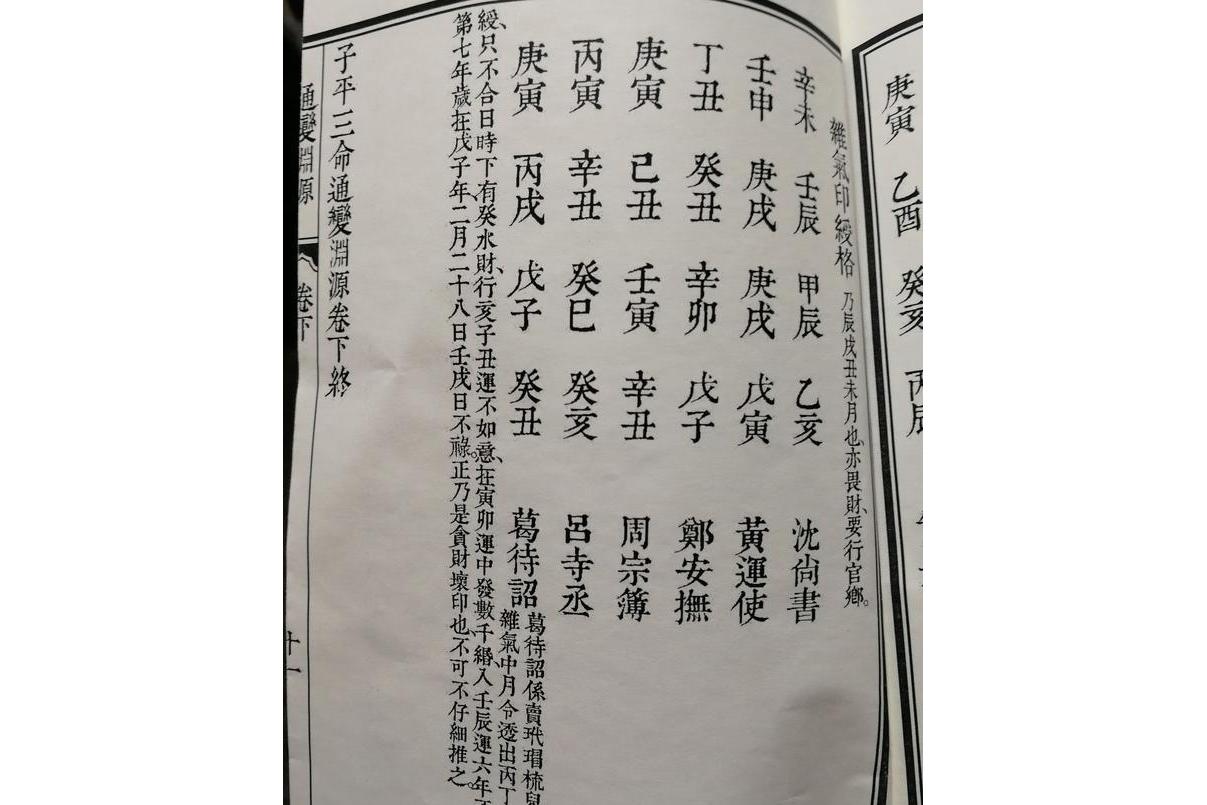 庚寅 乙酉 癸亥 丙辰
雜氣印綬格 乃辰戌丑未月也、亦畏財、要行官鄉。
辛未 壬辰 甲辰 乙亥 沈尙書
壬申 庚戌 庚戌 戊寅 黃運使
丁丑 癸丑 辛卯 戊子 鄭安撫
庚寅 己丑 壬寅 辛丑 周宗簿
丙寅 辛丑 癸巳 癸亥 呂寺丞
庚寅 丙戌 戊子 癸丑 葛待詔
葛待詔係賣玳瑁梳兒
雜氣中月令透出丙丁
綬、只不合日時下有癸水財、行亥子丑運不如意、在寅卯運中發數千緡、入壬辰運六年
第七年歲在戊子年、二月二十八日壬戌日不祿。正乃是貪財壞印也、不可不仔細推之。
子平三命通變淵源卷下終
通變淵源 卷下 十一